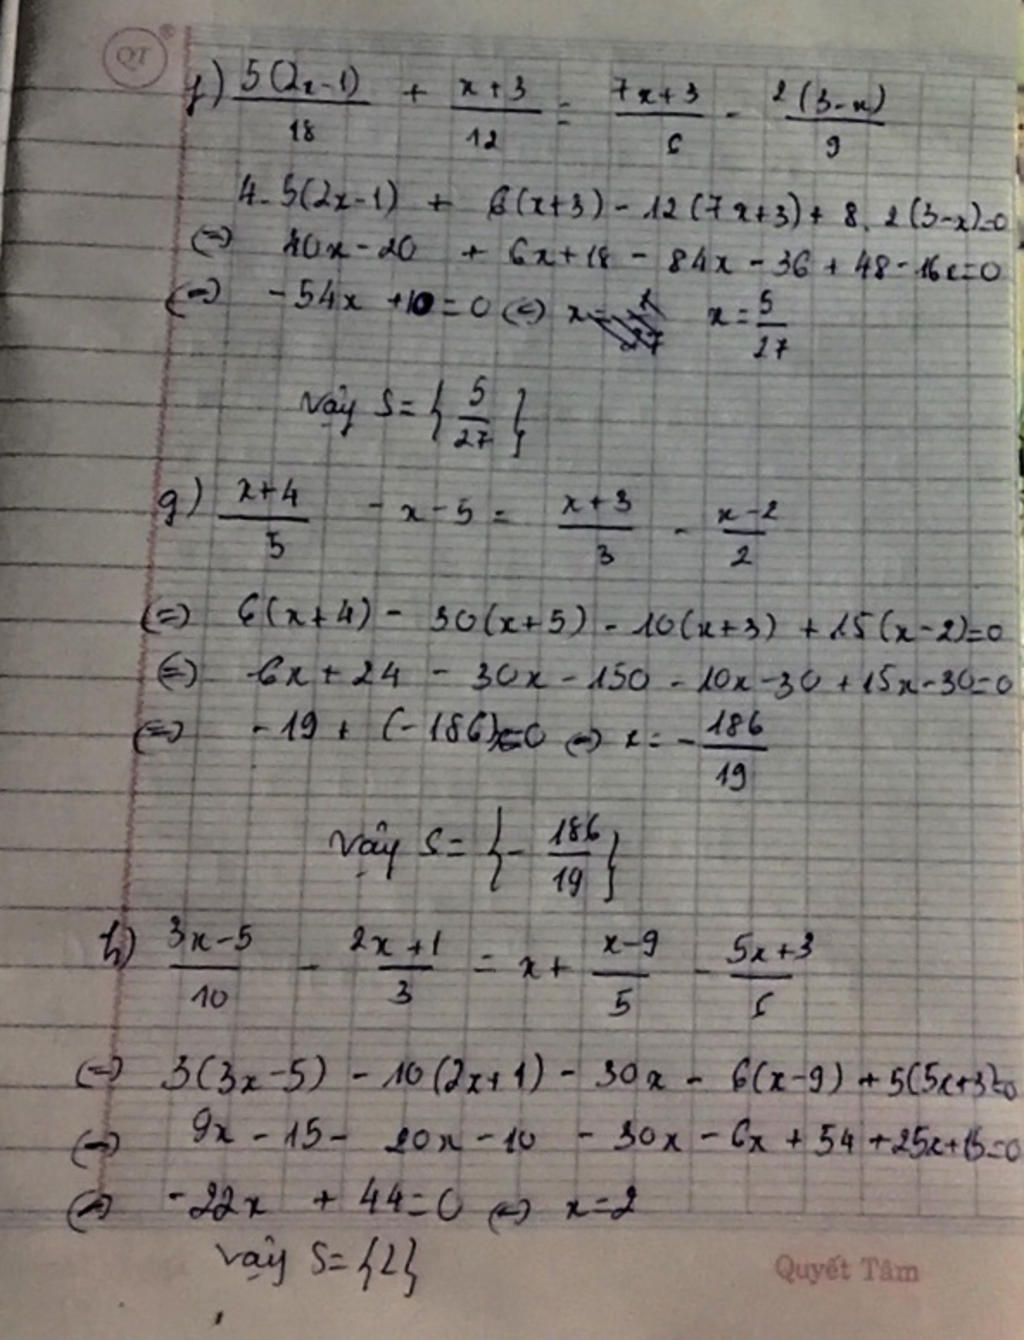 QT
f) 5(2x-1)/18 + x+3/12 = 7x+3/6 - 2(3-x)/9
4.5(2x-1) + 6(x+3) - 12(7x+3) + 8.2(3-x)=0
(=) 40x-20 + 6x+18 - 84x - 36 + 48 - 16x=0
(=) -54x +10 = 0 (=) x = 5/27
Vậy S = { 5/27 }
g) x+4/5 - x - 5 = x+3/3 - x-2/2
(=) 6(x+4) - 30(x+5) - 10(x+3) + 15(x-2)=0
(=) 6x + 24 - 30x - 150 - 10x - 30 + 15x - 30=0
(=) -19 + (-186)=0 (=) x = - 186/19
Vậy S = { - 186/19 }
h) 3x-5/10 - 2x+1/3 = x + x-9/5 - 5x+3/6
(=) 3(3x-5) - 10(2x+1) - 30x - 6(x-9) + 5(5x+3)=0
(=) 9x - 15 - 20x - 10 - 30x - 6x + 54 + 25x+15=0
(=) -22x + 44=0 (=) x=2
Vậy S={2}
Quyết Tâm